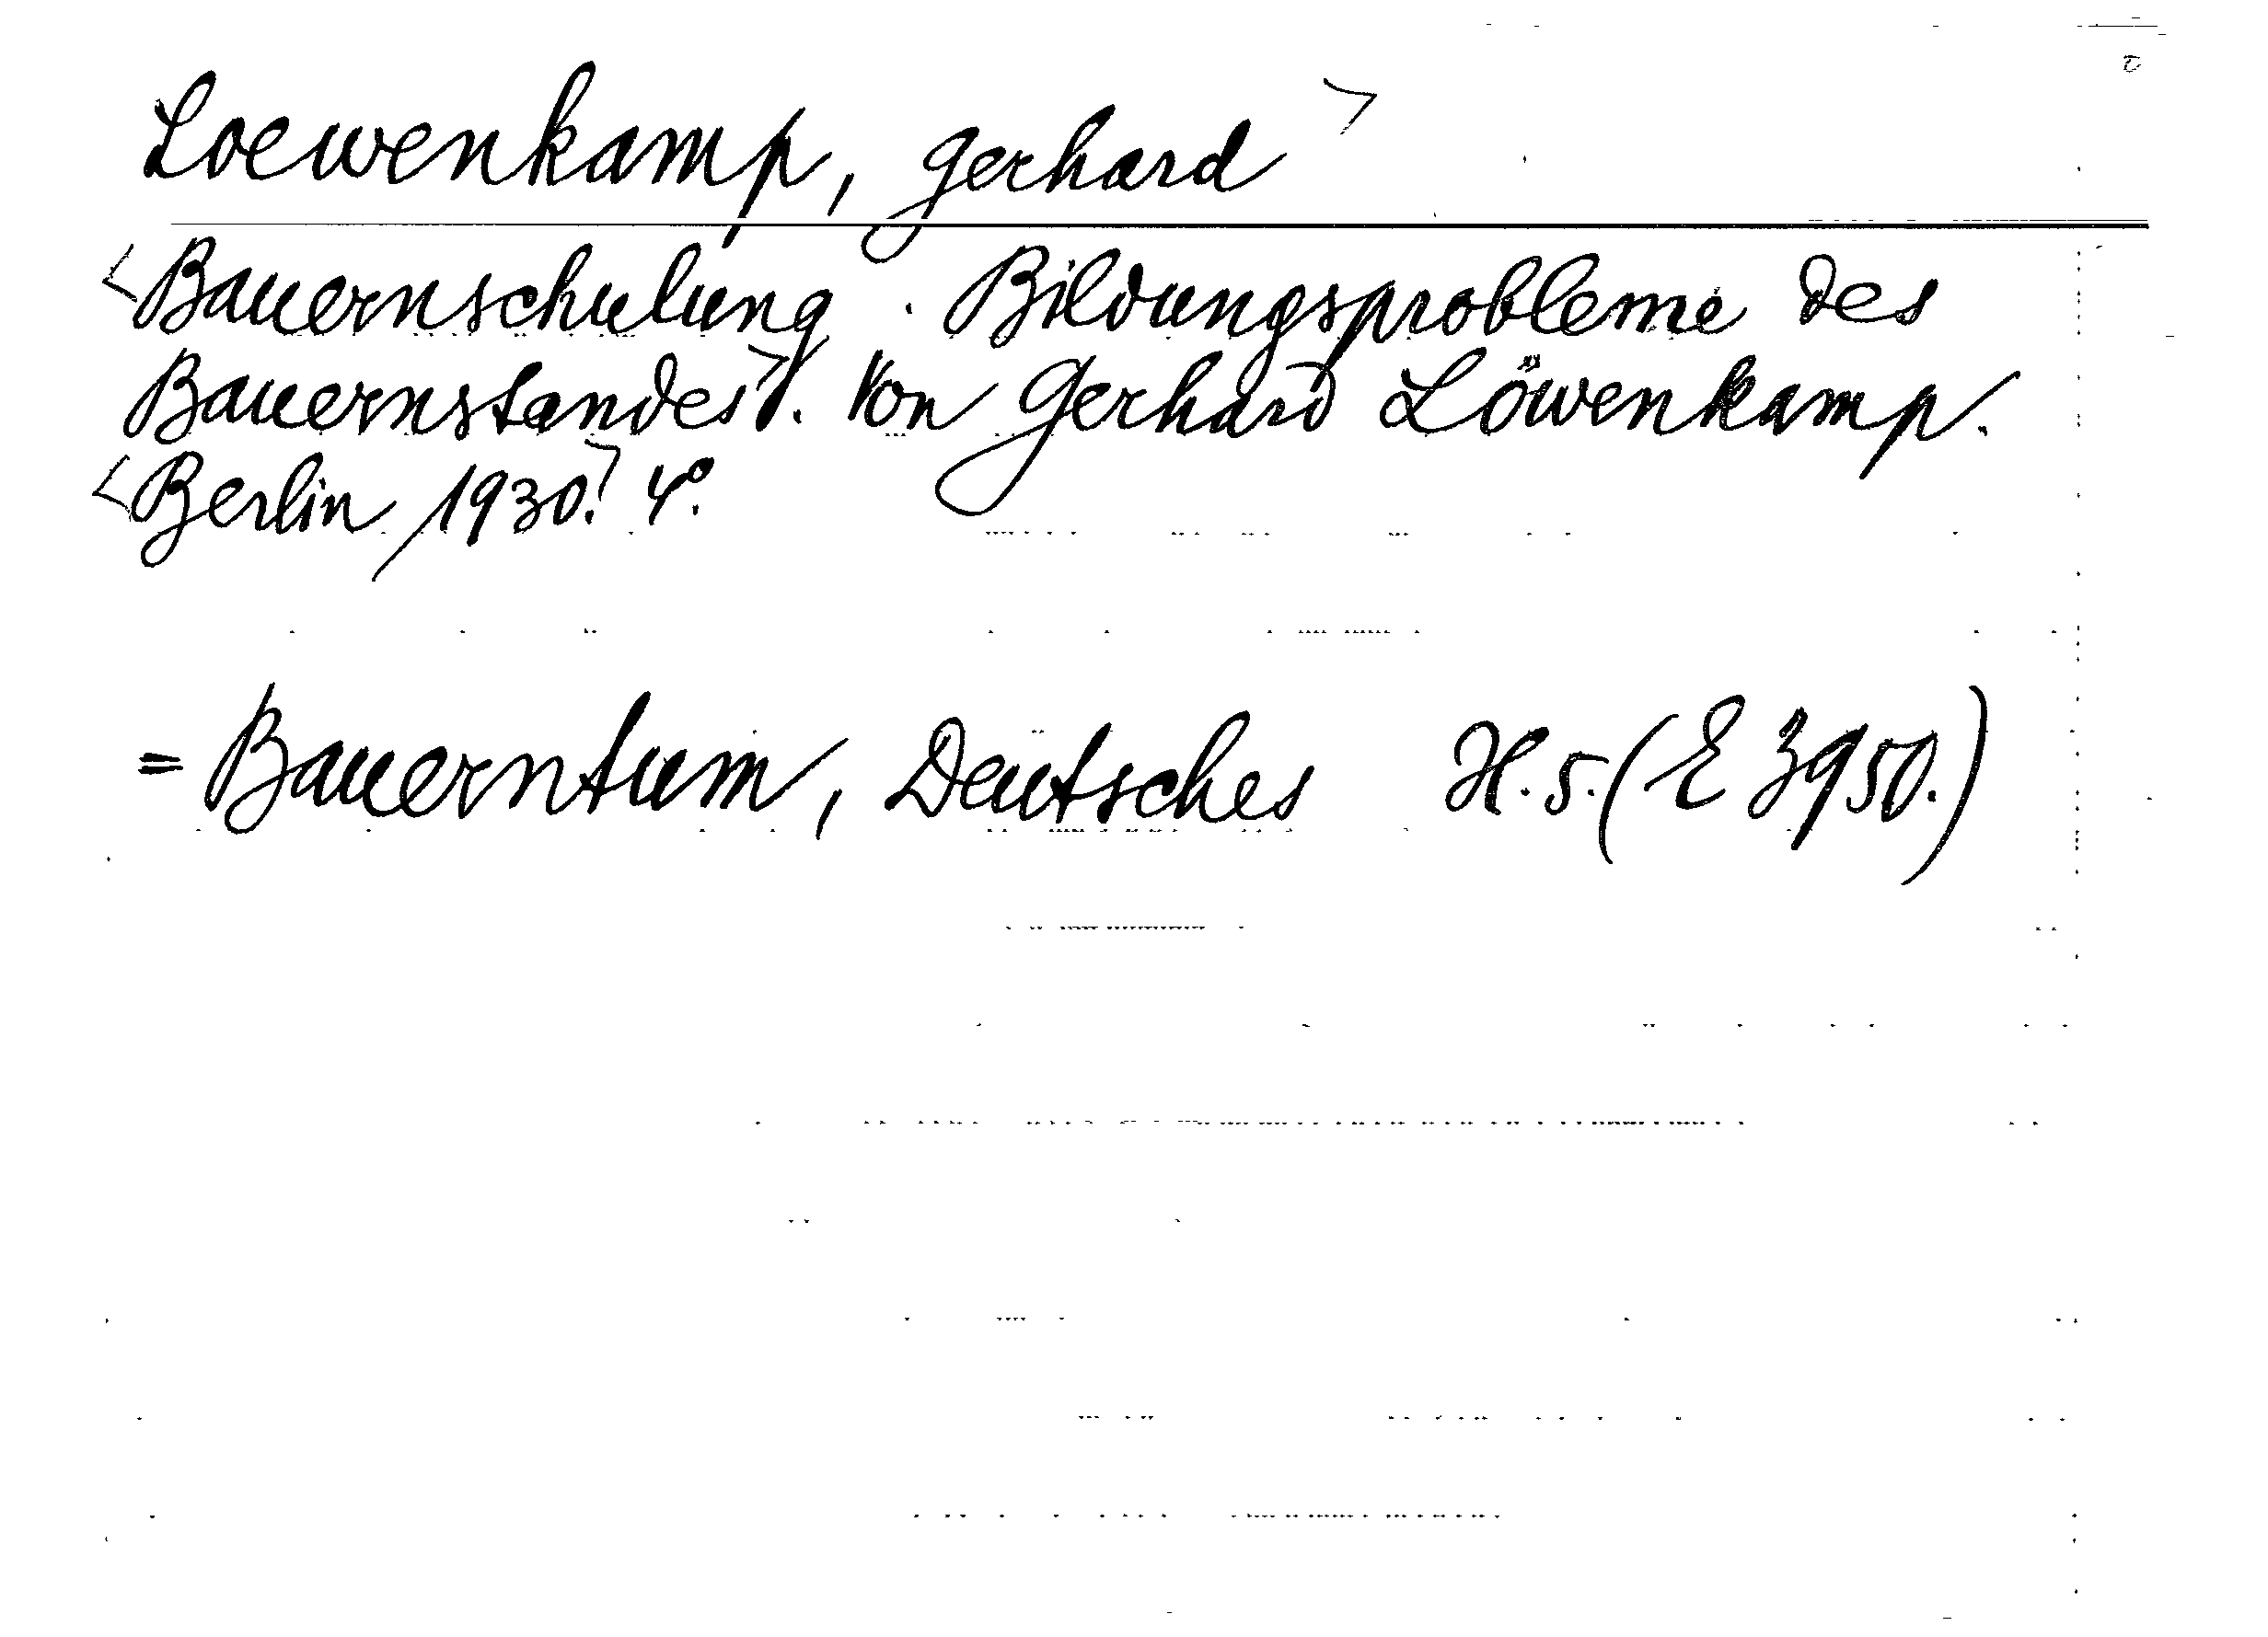 Loewenkamp, Gerhard >
<Bauernschulung. Bildungsprobleme des
Bauernstandes>. Von Gerhard Löwenkamp.
<Berlin 1930.> 4°.
= Bauerntum, Deutsches H. 5. (E 3950.)